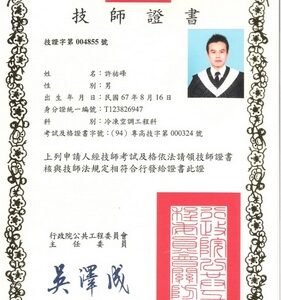 技師證書
技證字第 004855 號
姓名：許祐峰
性別：男
出生年月日：民國 67 年 8 月 16 日
身分證統一編號：T123826947
科別：冷凍空調工程科
考試及格證書字號：(94) 專高技字第 000324 號
上列申請人經技師考試及格依法請領技師證書
核與技師法規定相符合行發給證書此證
行政院公共工程委員會
主任委員
吳澤成